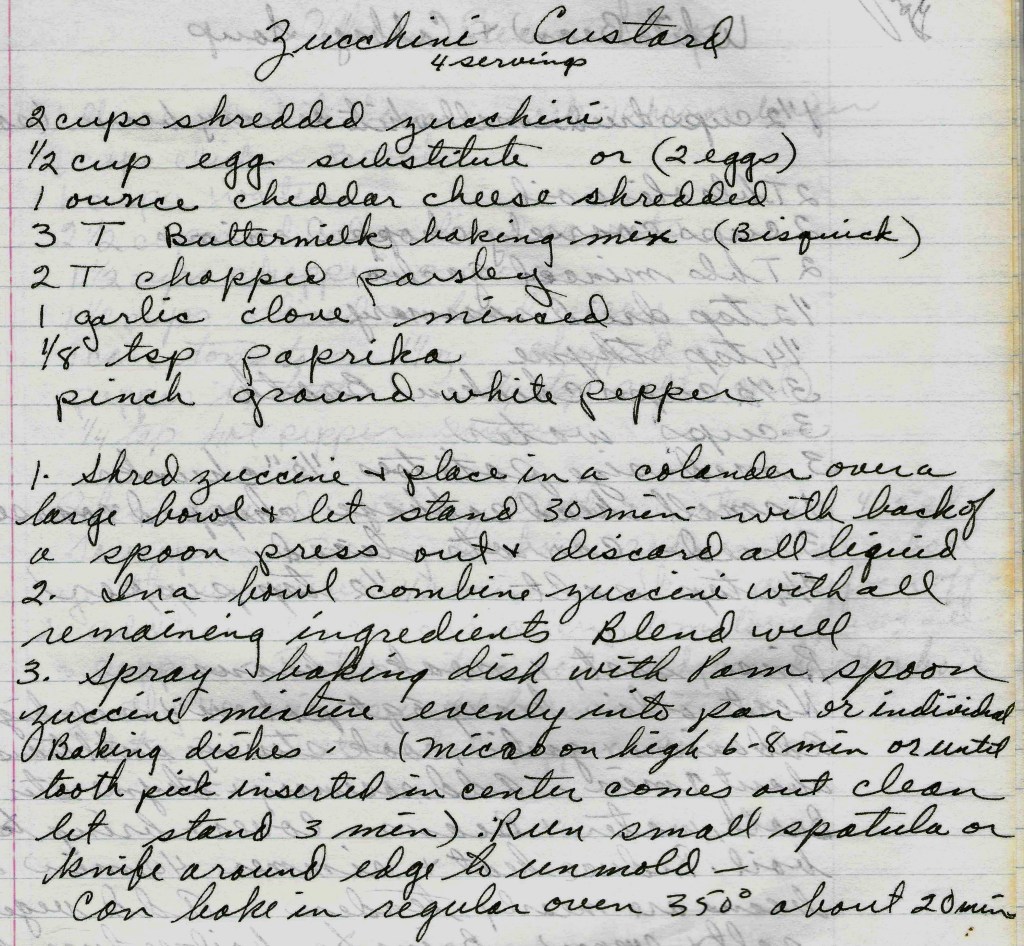 Zucchini Custard
4 servings
2 cups shredded zucchini
1/2 cup egg substitute or (2 eggs)
1 ounce cheddar cheese shredded
3 T Buttermilk baking mix (Bisquick)
2 T chopped parsley
1 garlic clove minced
1/8 tsp paprika
pinch ground white pepper
1. Shred zuccine + place in a colander over a
large bowl + let stand 30 min - with back of
a spoon press out + discard all liquid
2. In a bowl combine zuccini with all
remaining ingredients Blend well
3. Spray baking dish with Pam spoon
zuccini mixture evenly into pan or individual
Baking dishes. (micro on high 6-8 min or until
tooth pick inserted in center comes out clean
let stand 3 min). Run small spatula or
knife around edge to unmold -
Can bake in regular oven 350° about 20 min